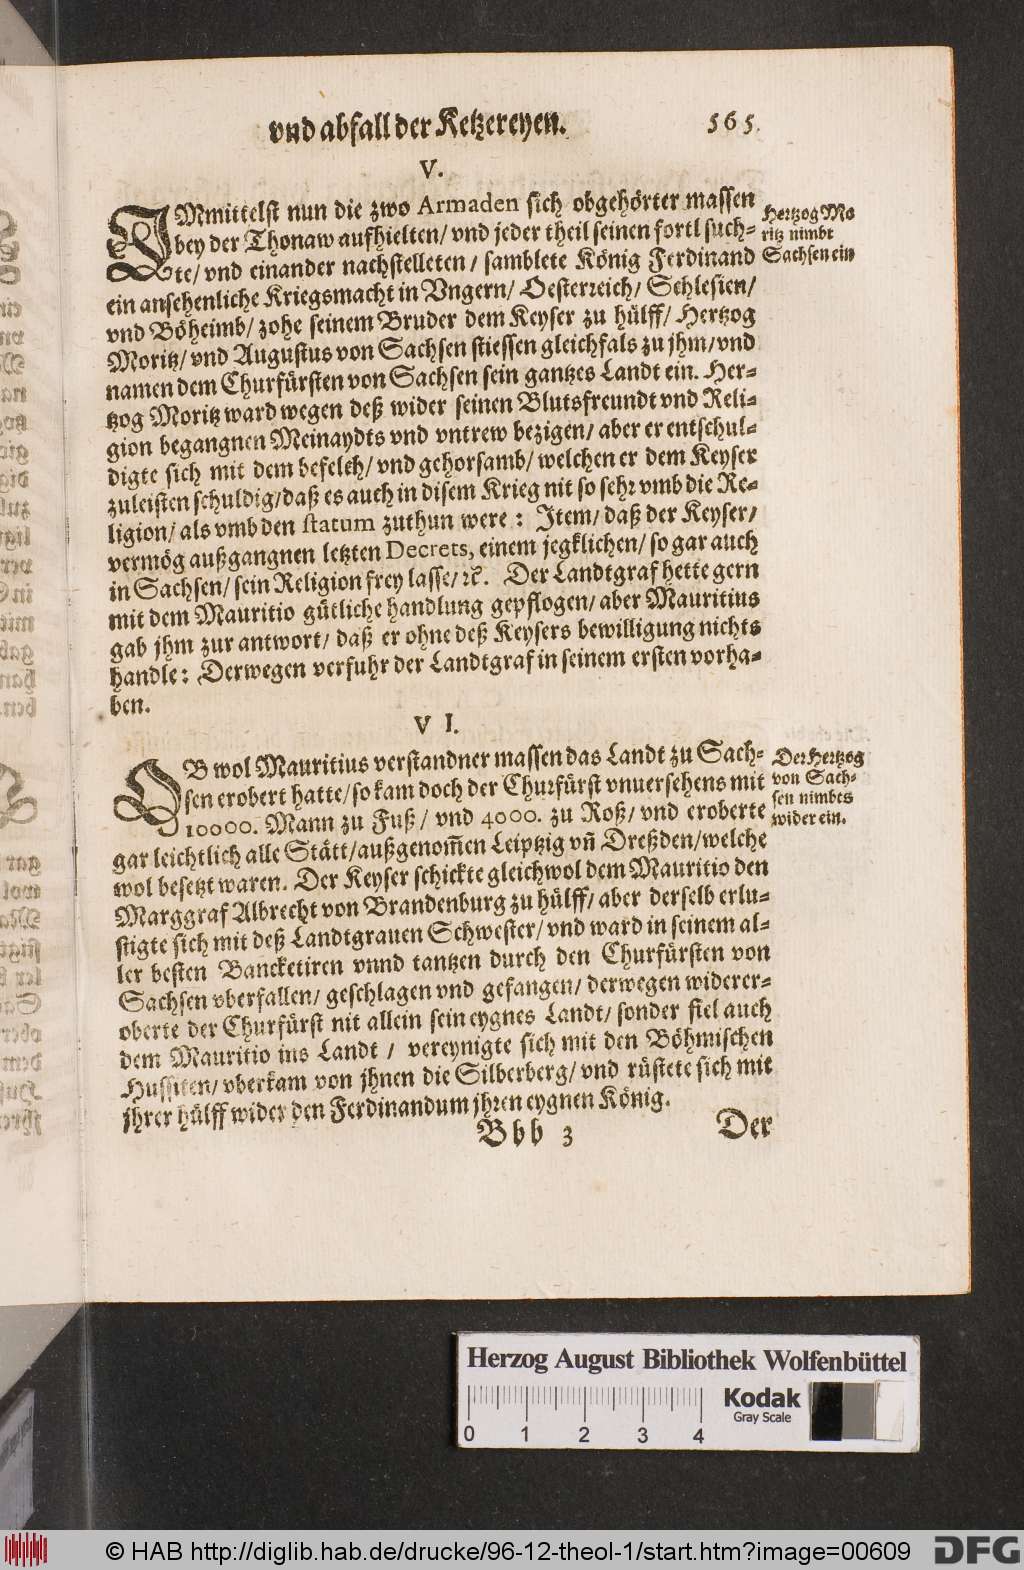 vnd abfall der Ketzereyen. 565.
V.
IMmittelst nun die zwo Armaden sich obgehörter massen
bey der Thonaw aufhielten/ vnd jeder theil seinen fortl such-
te/ vnd einander nachstelleten/ samblete König Ferdinand
ein ansehenliche Kriegsmacht in Vngern/ Oesterreich/ Schlesien/
vnd Böheimb/ zohe seinem Bruder dem Keyser zu hülff/ Hertzog
Moritz/ vnd Augustus von Sachsen stiessen gleichfals zu jhm/ vnd
namen dem Churfürsten von Sachsen sein gantzes Landt ein. Her-
tzog Moritz ward wegen deß wider seinen Blutsfreundt vnd Reli-
gion begangnen Meinaydts vnd vntrew bezigen/ aber er entschul-
digte sich mit dem befelch/ vnd gehorsamb/ welchen er dem Keyser
zuleisten schuldig/ daß es auch in disem Krieg nit so sehr vmb die Re-
ligion/ als vmb den statum zuthun were : Item/ daß der Keyser/
vermög außgangnen letzten Decrets, einem jegklichen/ so gar auch
in Sachsen/ sein Religion frey lasse/ ꝛc. Der Landtgraf hette gern
mit dem Mauritio gütliche handlung gepflogen/ aber Mauritius
gab jhm zur antwort/ daß er ohne deß Keysers bewilligung nichts
handle : Derwegen verfuhr der Landtgraf in seinem ersten vorha-
ben.
Hertzog Mo
ritz nimbt
Sachsen ein
VI.
OB wol Mauritius verstandner massen das Landt zu Sach-
sen erobert hatte/ so kam doch der Churfürst vnuersehens mit
10000. Mann zu Fuß/ vnd 4000. zu Roß/ vnd eroberte
gar leichtlich alle Stätt/ außgenom̃en Leiptzig vn̄ Dreßden/ welche
wol besetzt waren. Der Keyser schickte gleichwol dem Mauritio den
Marggraf Albrecht von Brandenburg zu hülff/ aber derselb erlu-
stigte sich mit deß Landtgrauen Schwester/ vnd ward in seinem al-
ler besten Bancketiren vnnd tantzen durch den Churfürsten von
Sachsen vberfallen/ geschlagen vnd gefangen/ derwegen widerer-
oberte der Churfürst nit allein sein eygnes Landt/ sonder fiel auch
dem Mauritio ins Landt / vereynigte sich mit den Böhmischen
Hussiten/ vberkam von jhnen die Silberberg/ vnd rüstete sich mit
jhrer hülff wider den Ferdinandum jhren eygnen König.
Der Hertzog
von Sach-
sen nimbts
wider ein.
Bbb 3 Der
Herzog August Bibliothek Wolfenbüttel
0 1 2 3 4
Kodak
Gray Scale
© HAB http://diglib.hab.de/drucke/96-12-theol-1/start.htm?image=00609
DFG